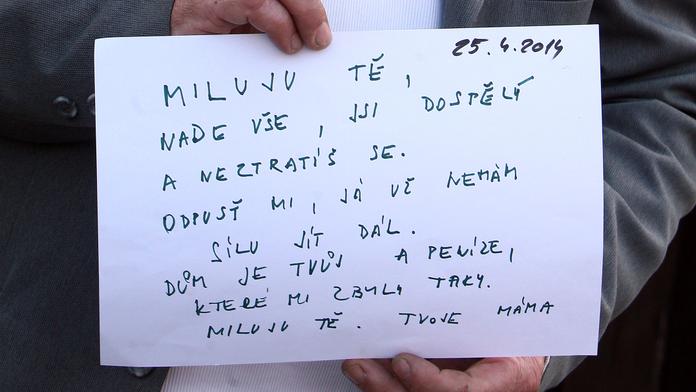 25.4.2014
MILUJU TĚ,
NADE VŠE, JSI DOSPĚLÝ
A NEZTRATÍŠ SE.
ODPUSŤ MI, JÁ UŽ NEMÁM
SÍLU JÍT DÁL.
DŮM JE TVŮJ A PENÍZE,
KTERÉ MI ZBYLY TAKY.
MILUJU TĚ. TVOJE MÁMA